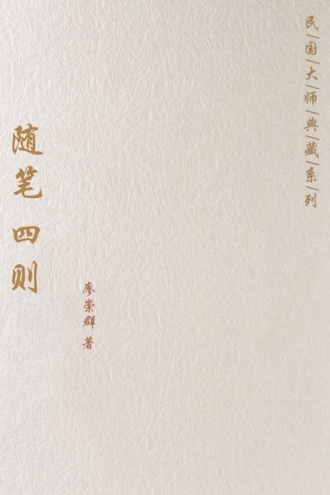 民|国|大|师|典|藏|系|列
随笔 四则
廖崇群 著